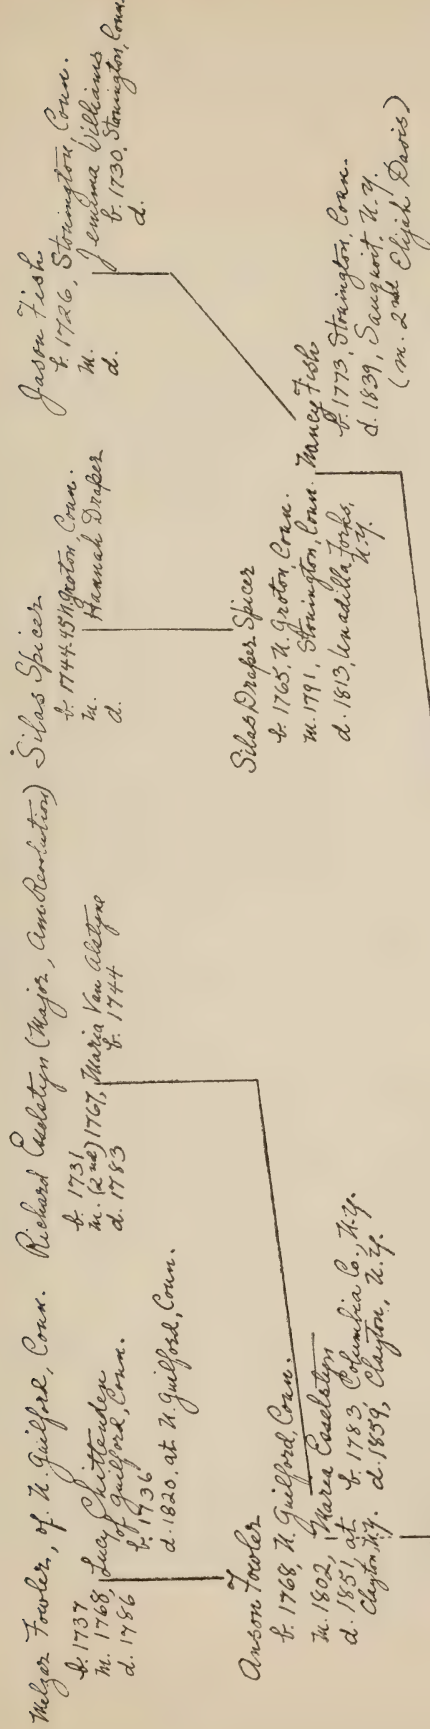 Melzar Fowler, of N. Guilford, Conn.
b. 1737
m. 1768, Lucy Chittenden
d. 1786
of Guilford, Conn.
b. 1736
d. 1820. at N. Guilford, Conn.
Richard Esselstyn (Major, Am. Revolution)
b. 1731
m. (2nd) 1767, Maria Van Alstyne
d. 1783
b. 1744
Silas Spicer
b. 1744.45 N. Groton, Conn.
m. Hannah Draper
d.
Jason Fish
b. 1726, Stonington, Conn.
m. Jemima Williams
d.
b. 1730, Stonington, Conn.
d.
Anson Fowler
b. 1768, N. Guilford, Conn.
m. 1802, Maria Esselstyn
d. 1851, at Clayton N.Y.
b. 1783 Columbia Co., N.Y.
d. 1859, Clayton, N.Y.
Silas Draper Spicer
b. 1765, N. Groton, Conn.
m. 1791, Stonington, Conn. Nancy Fish
d. 1813, Unadilla Forks, N.Y.
b. 1773, Stonington, Conn.
d. 1839, Sauquoit, N.Y.
(m. 2nd Elijah Davis)